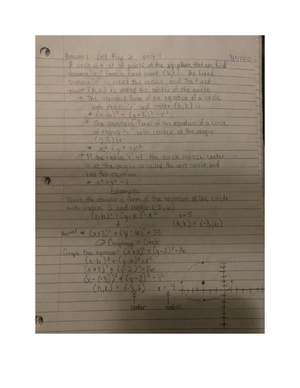 A circle is a set of points in the xy-plane that are fixed
distance "r" from a fixed point (h,k). The fixed
distance "r" is called the radius, and the fixed
point (h,k) is called the center of the circle
The standard form of an equation of a circle
with radius "r" and center (h,k) is
(x-h)² + (y-k)² = r²
The standard form of an equation of a circle
of radius "r" with center at the origin
(0,0) is
x² + y² = r²
If the radius r = 1, the circle whose center
is at the origin is called the unit circle and
has the equation
x² + y² = 1
Examples
the standard form of the equation of the circle
with radius 5 and center (-3,6)
(x-h)² + (y-k)² = r² r=5
(h,k) = (-3,6)
(x+3)² + (y-6)² = 25
Graphing a Circle
Graph the equation: (x+3)² + (y-2)² = 16
(x-h)² + (y-k)² = r²
(x+3)² + (y-2)² = 16
(x-(-3))² + (y-2)² = 4²
(h,k) = (-3,2) r = 4
center radius